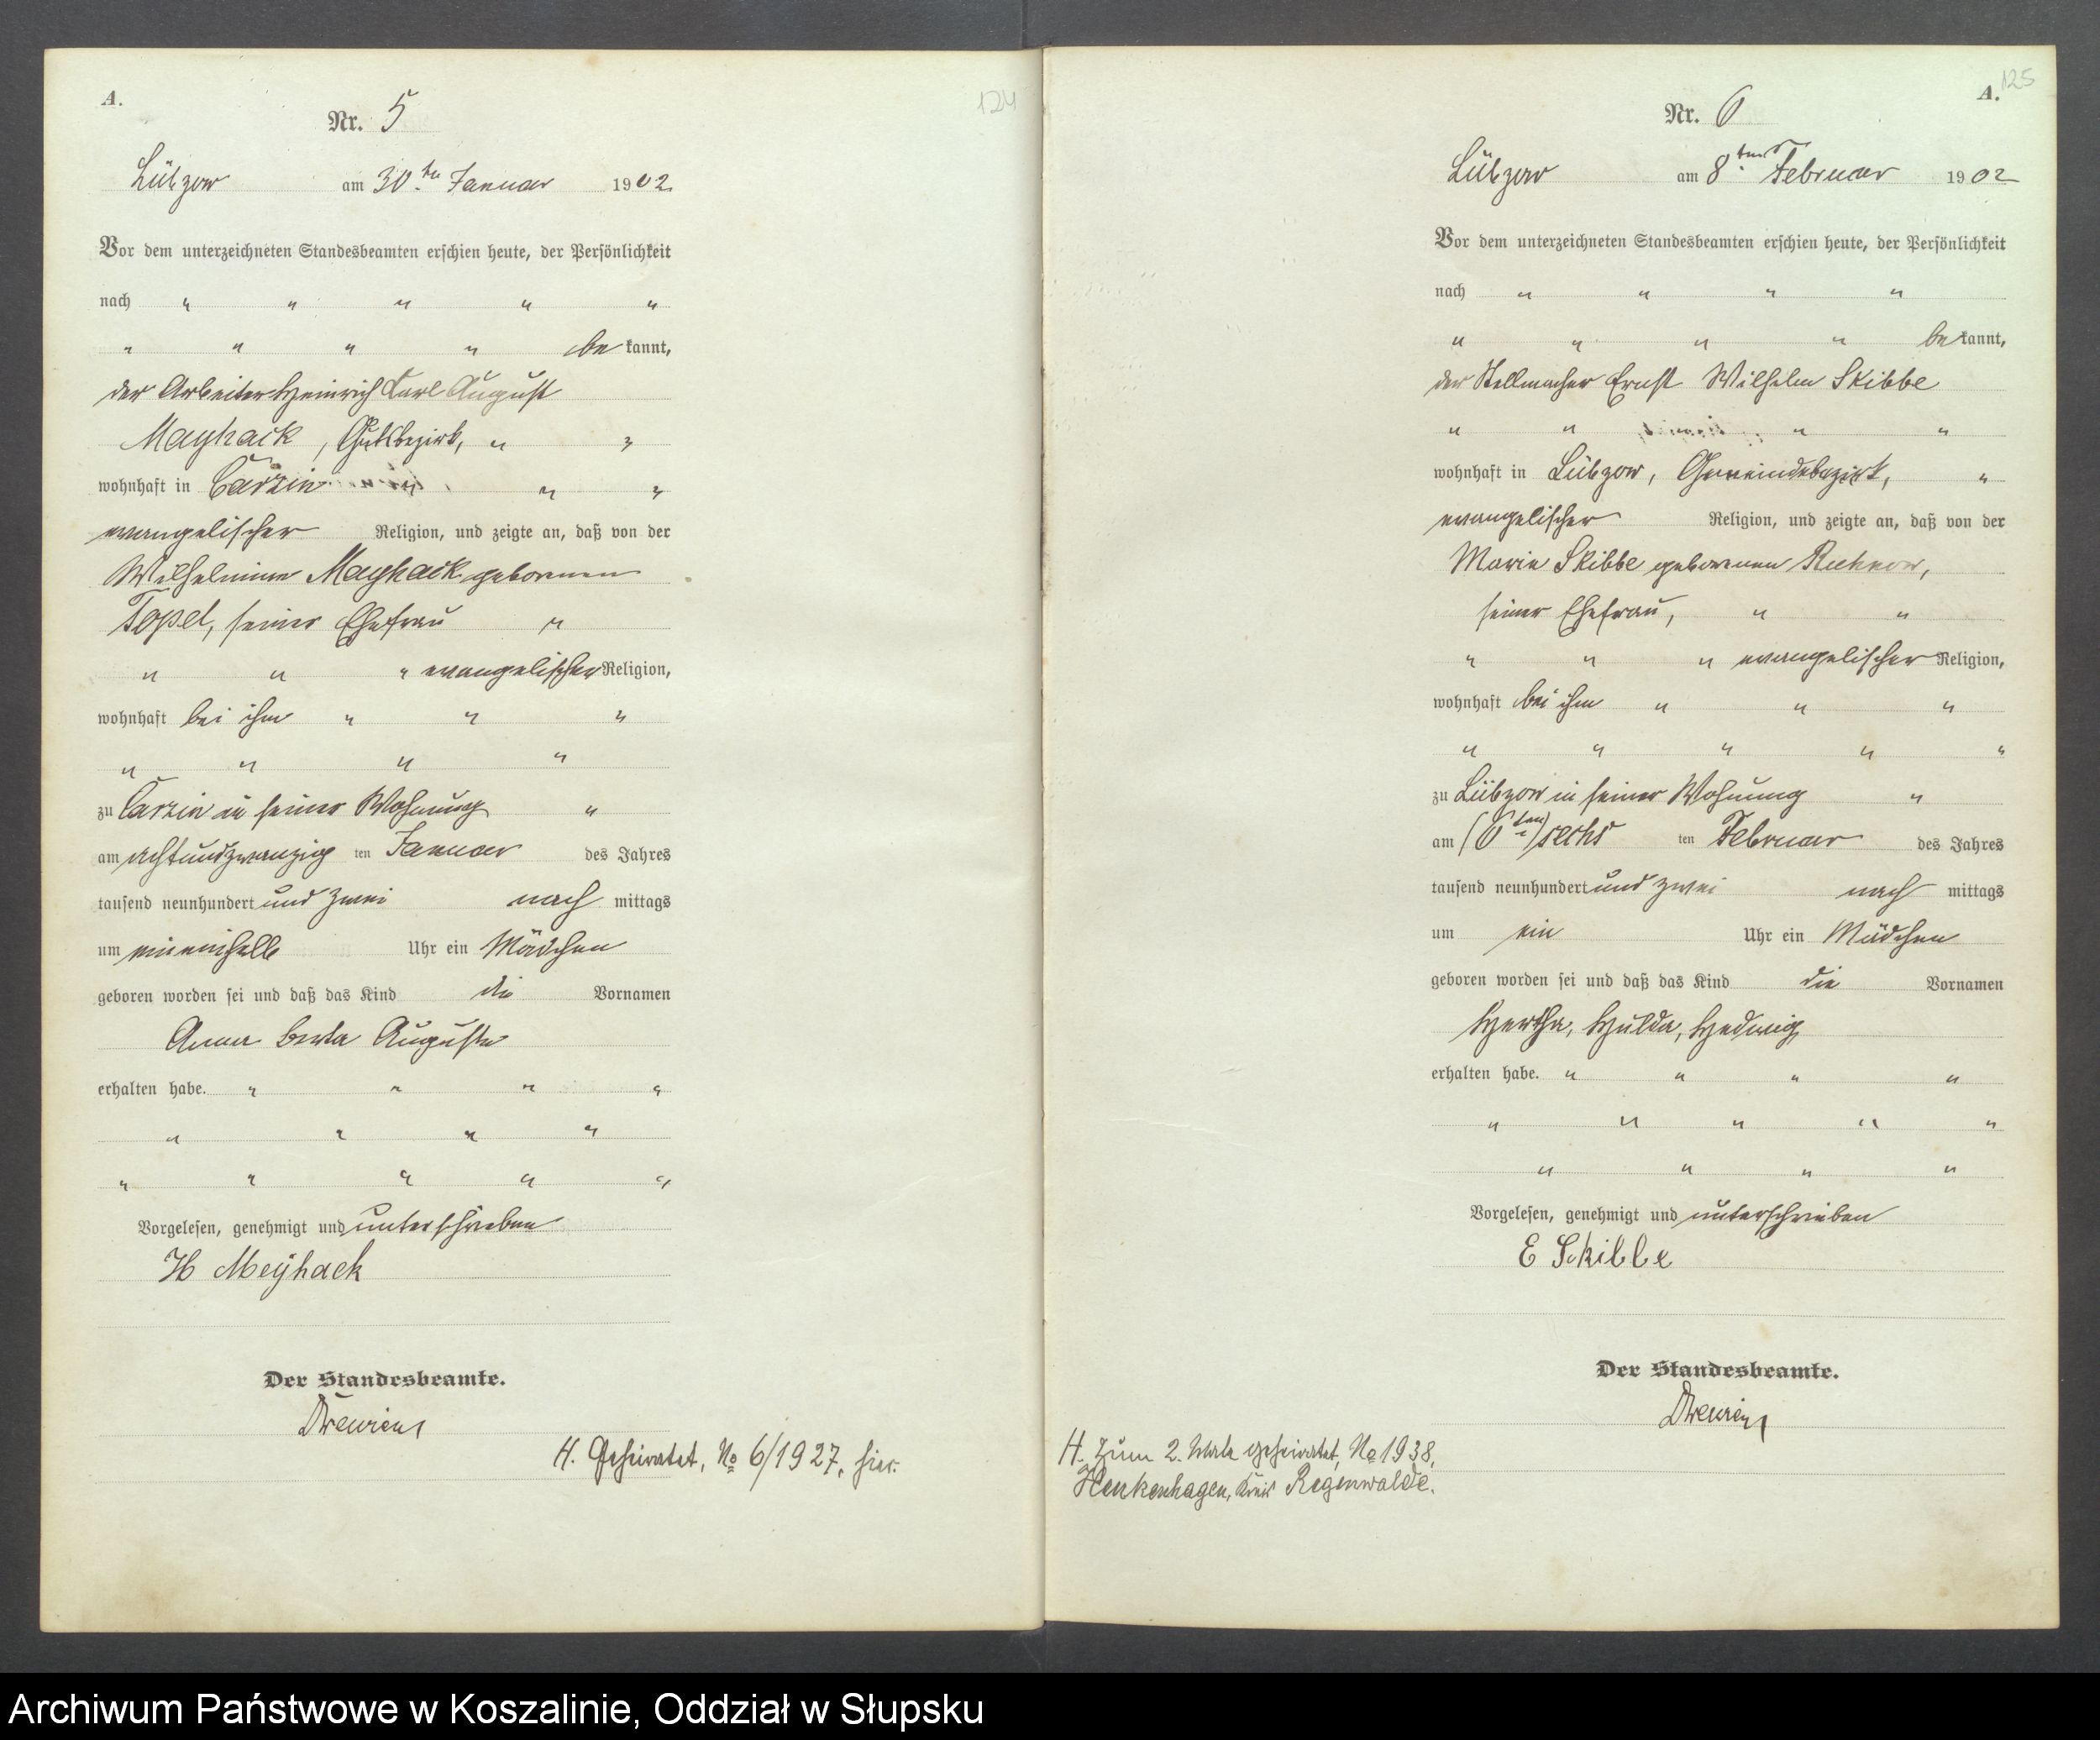 124
A.
Nr. 5
Lübzow am 30.ten Januar 1902.
Vor dem unterzeichneten Standesbeamten erschien heute, der Persönlichkeit
nach " " " " "
" " " " be kannt,
der Arbeiter Heinrich Carl August
Mayhack, Gutsbezirk, " "
wohnhaft in Carzin " "
evangelischer Religion, und zeigte an, daß von der
Wilhelmine Mayhack geborenen
Topel, seiner Ehefrau "
" " " evangelischer Religion,
wohnhaft bei ihm " " "
" " " "
zu Carzin in seiner Wohnung "
am achtundzwanzig ten Januar des Jahres
tausend neunhundert und zwei nach mittags
um eineinhalb Uhr ein Mädchen
geboren worden sei und daß das Kind die Vornamen
Anna Berta Auguste
erhalten habe. " " " "
" " " "
" " " " "
Vorgelesen, genehmigt und unterschrieben
H Meyhack
Der Standesbeamte.
Drewiens
H. Geheiratet, No 6/1927, hier.
125
A.
Nr. 6
Lübzow am 8.ten Februar 1902
Vor dem unterzeichneten Standesbeamten erschien heute, der Persönlichkeit
nach " " " "
" " " " be kannt,
der Stellmacher Ernst Wilhelm Skibbe
" " " "
wohnhaft in Lübzow, Gemeindebezirk, "
evangelischer Religion, und zeigte an, daß von der
Marie Skibbe geborenen Ruchnow,
seiner Ehefrau, " "
" " " evangelischer Religion,
wohnhaft bei ihm " " "
" " " " "
zu Lübzow in seiner Wohnung "
am (6.ten) sechs ten Februar des Jahres
tausend neunhundert und zwei nach mittags
um ein Uhr ein Mädchen
geboren worden sei und daß das Kind die Vornamen
Hertha, Hulda, Hedwig
erhalten habe. " " " "
" " " " "
" " " "
Vorgelesen, genehmigt und unterschrieben
E Skibbe
Der Standesbeamte.
Drewiens
H. Zum 2. Male geheiratet, No 1938,
Henkenhagen, Kreis Regenwalde.
Archiwum Państwowe w Koszalinie, Oddział w Słupsku